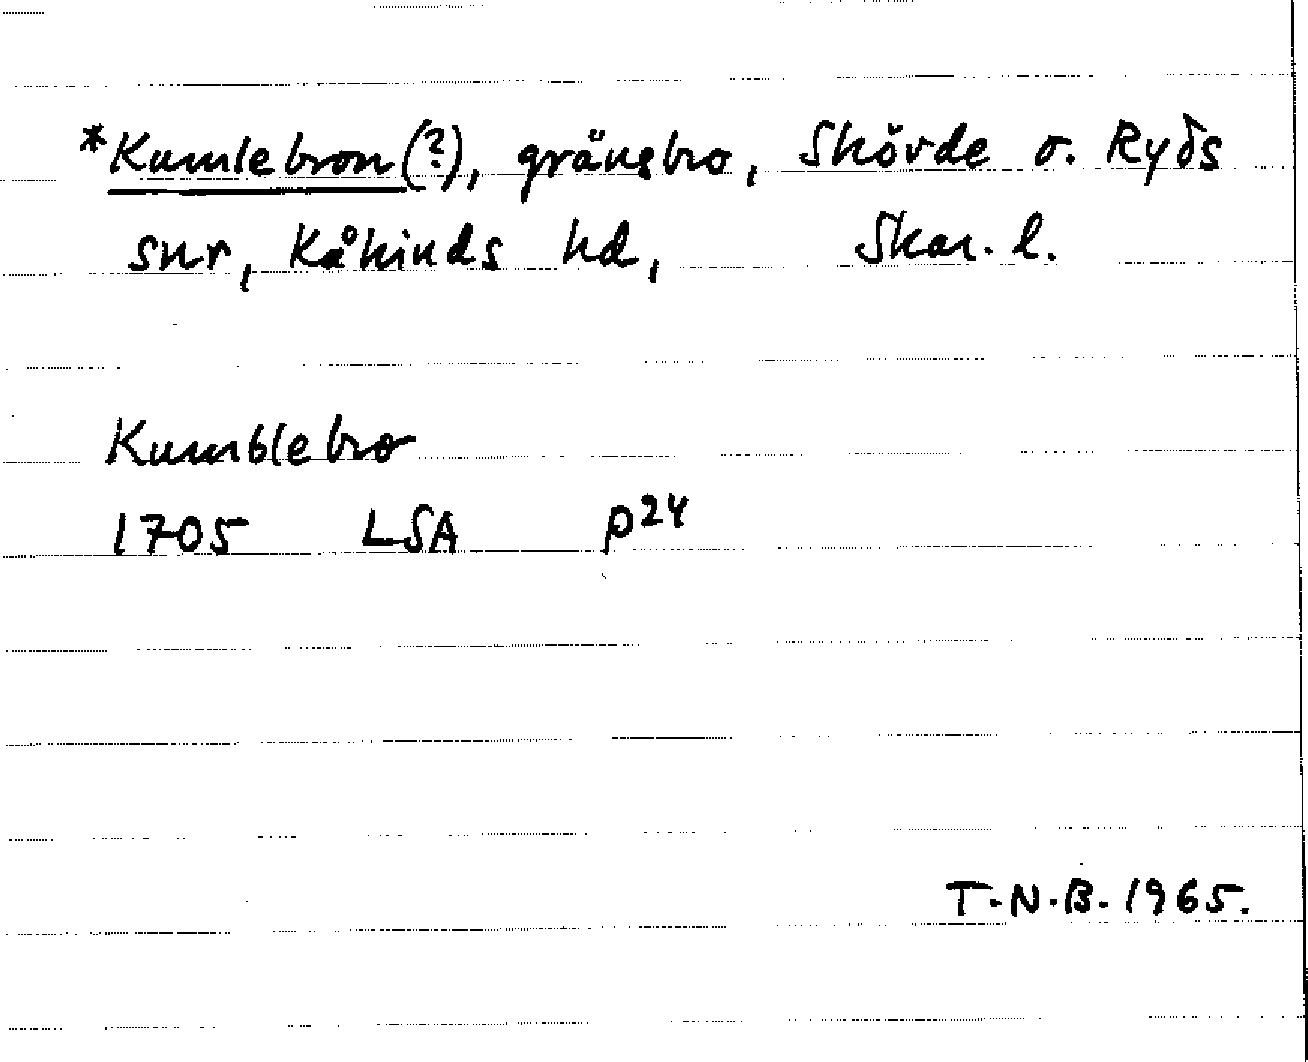 *Kumlebron(?), gränsbro, Skövde o. Ryds
snr, Kåkinds hd, Skar. l.
Kumblebro
1705 LSA P24
T.N.B. 1965.